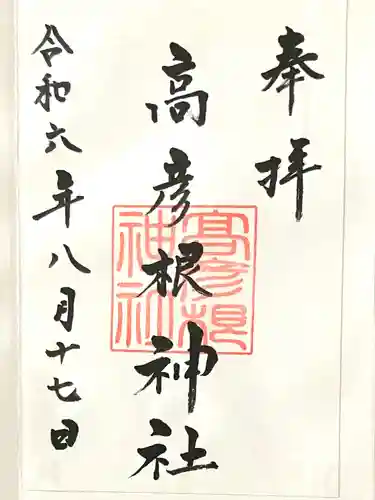 奉拝
高彦根神社
高彦根
神社
令和六年八月十七日